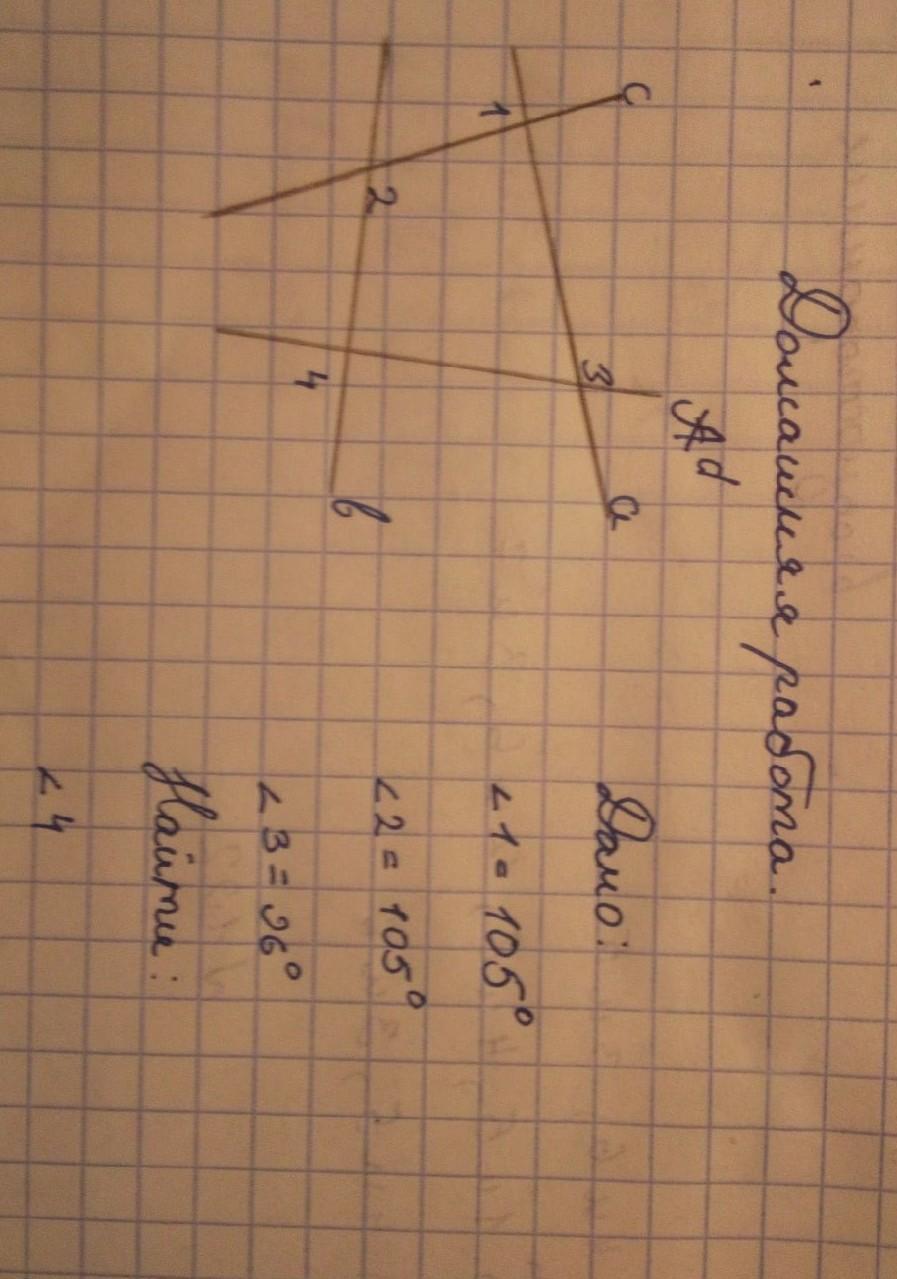 Домашняя работа.
c
A d
1
3
a
2
4
b
Дано:
∠1 = 105°
∠2 = 105°
∠3 = 96°
Найти:
∠4